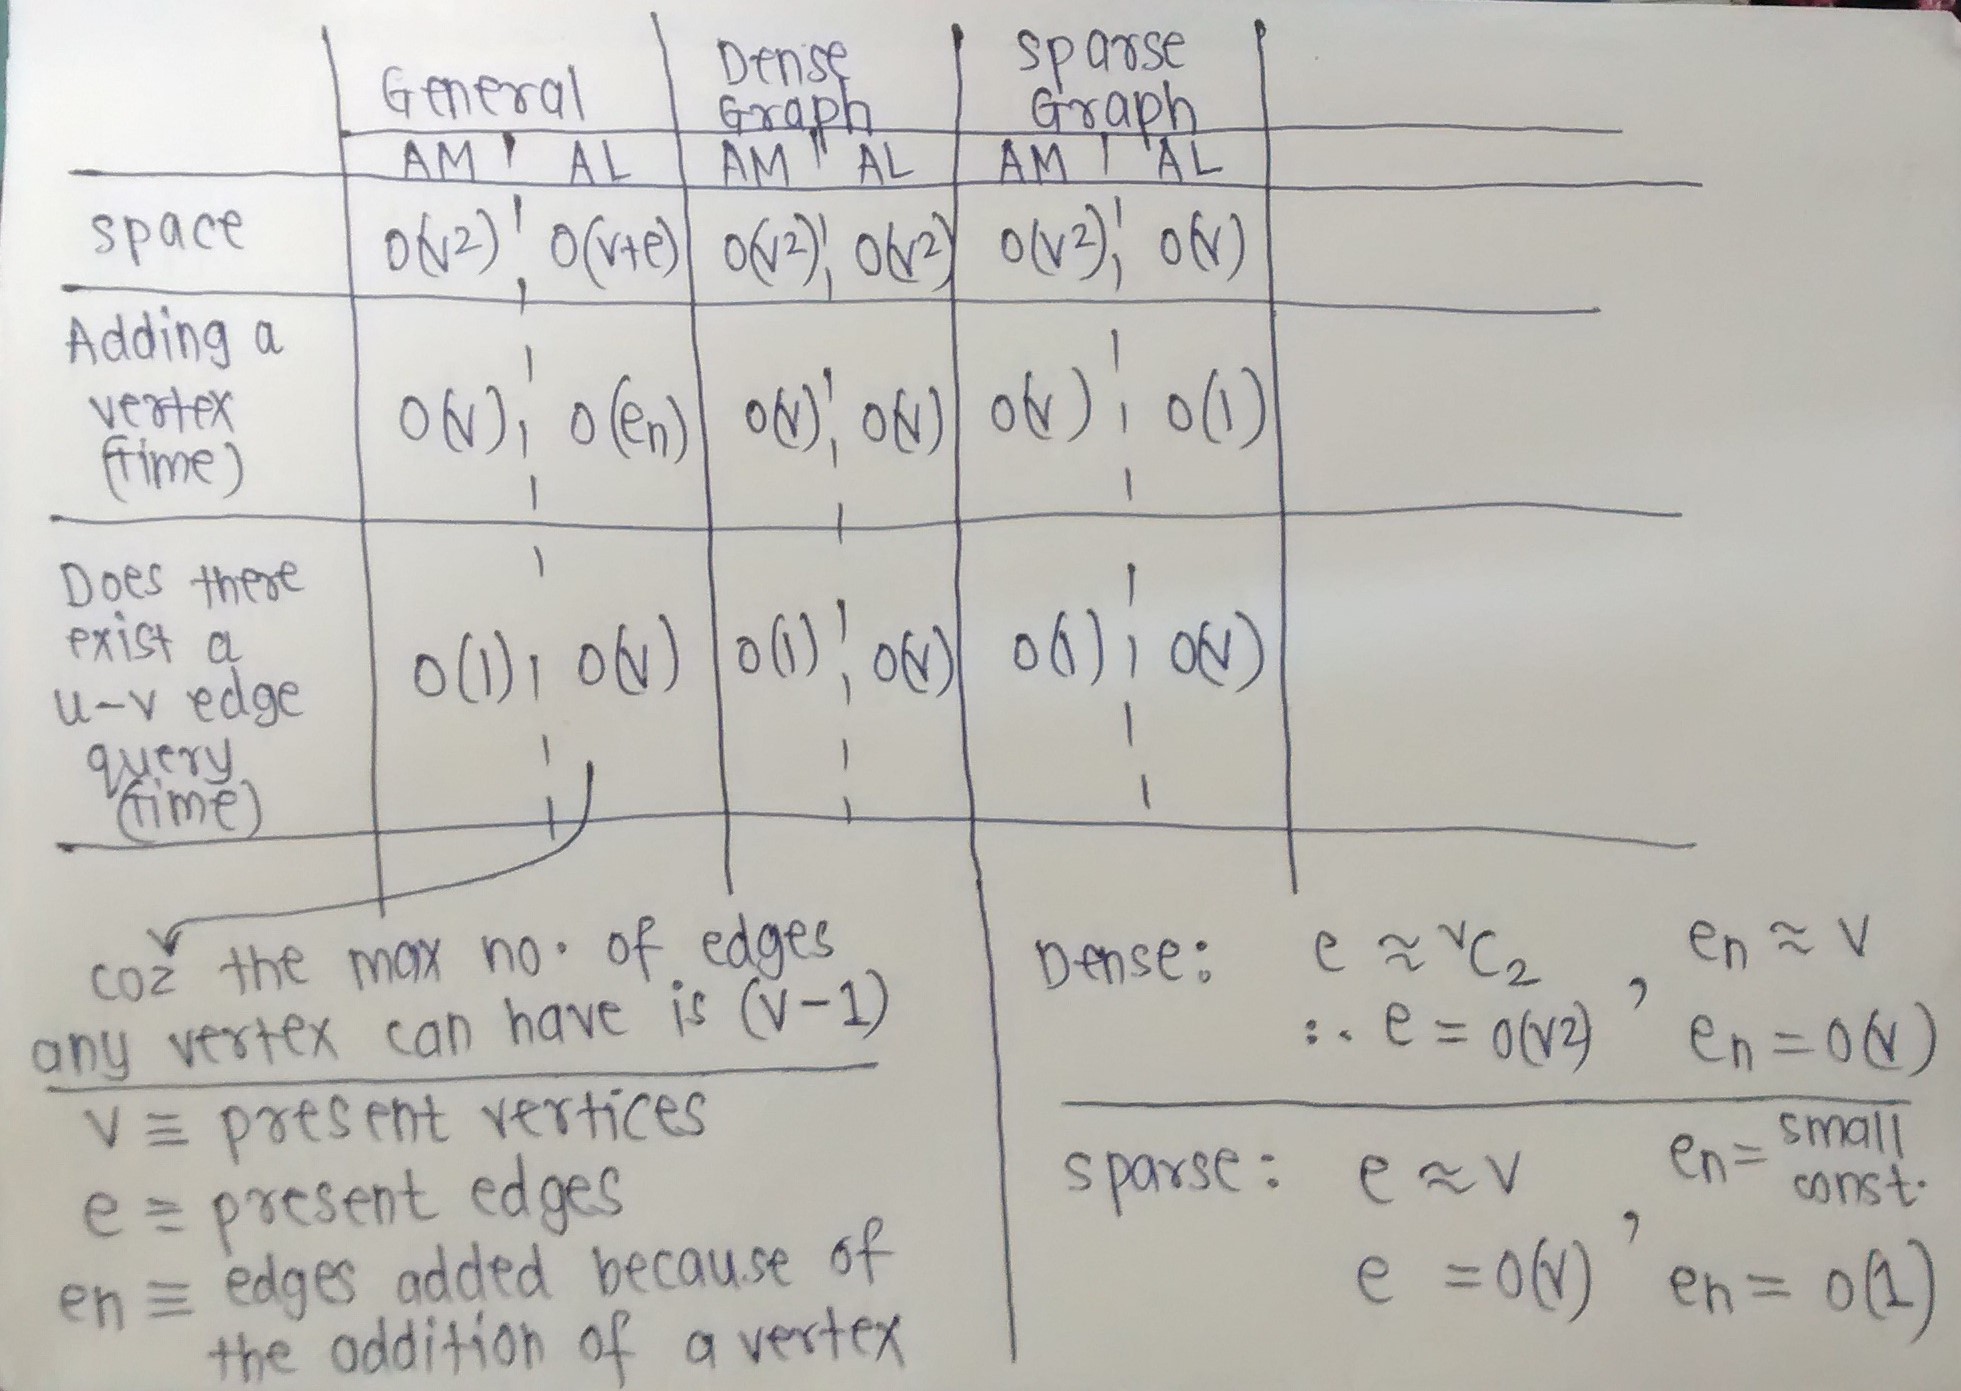 General Dense Graph sparse Graph
AM AL AM AL AM AL
space O(v2) O(v+e) O(v2) O(v2) O(v2) O(v)
Adding a vertex (time) O(v) O(en) O(v) O(v) O(v) O(1)
Does there exist a u-v edge query (time) O(1) O(v) O(1) O(v) O(1) O(v)
coz the max no. of edges
any vertex can have is (v-1)
v ≡ present vertices
e ≡ present edges
en ≡ edges added because of
the addition of a vertex
Dense: e ≈ vC2 , en ≈ v
∴ e = O(v2) en = O(v)
sparse: e ≈ v , en = small const.
e = O(v) en = O(1)